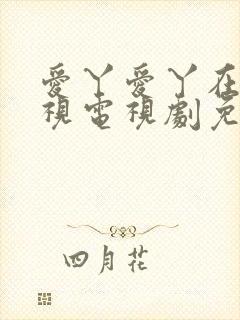 愛丫愛丫在
視電視劇免
四月花